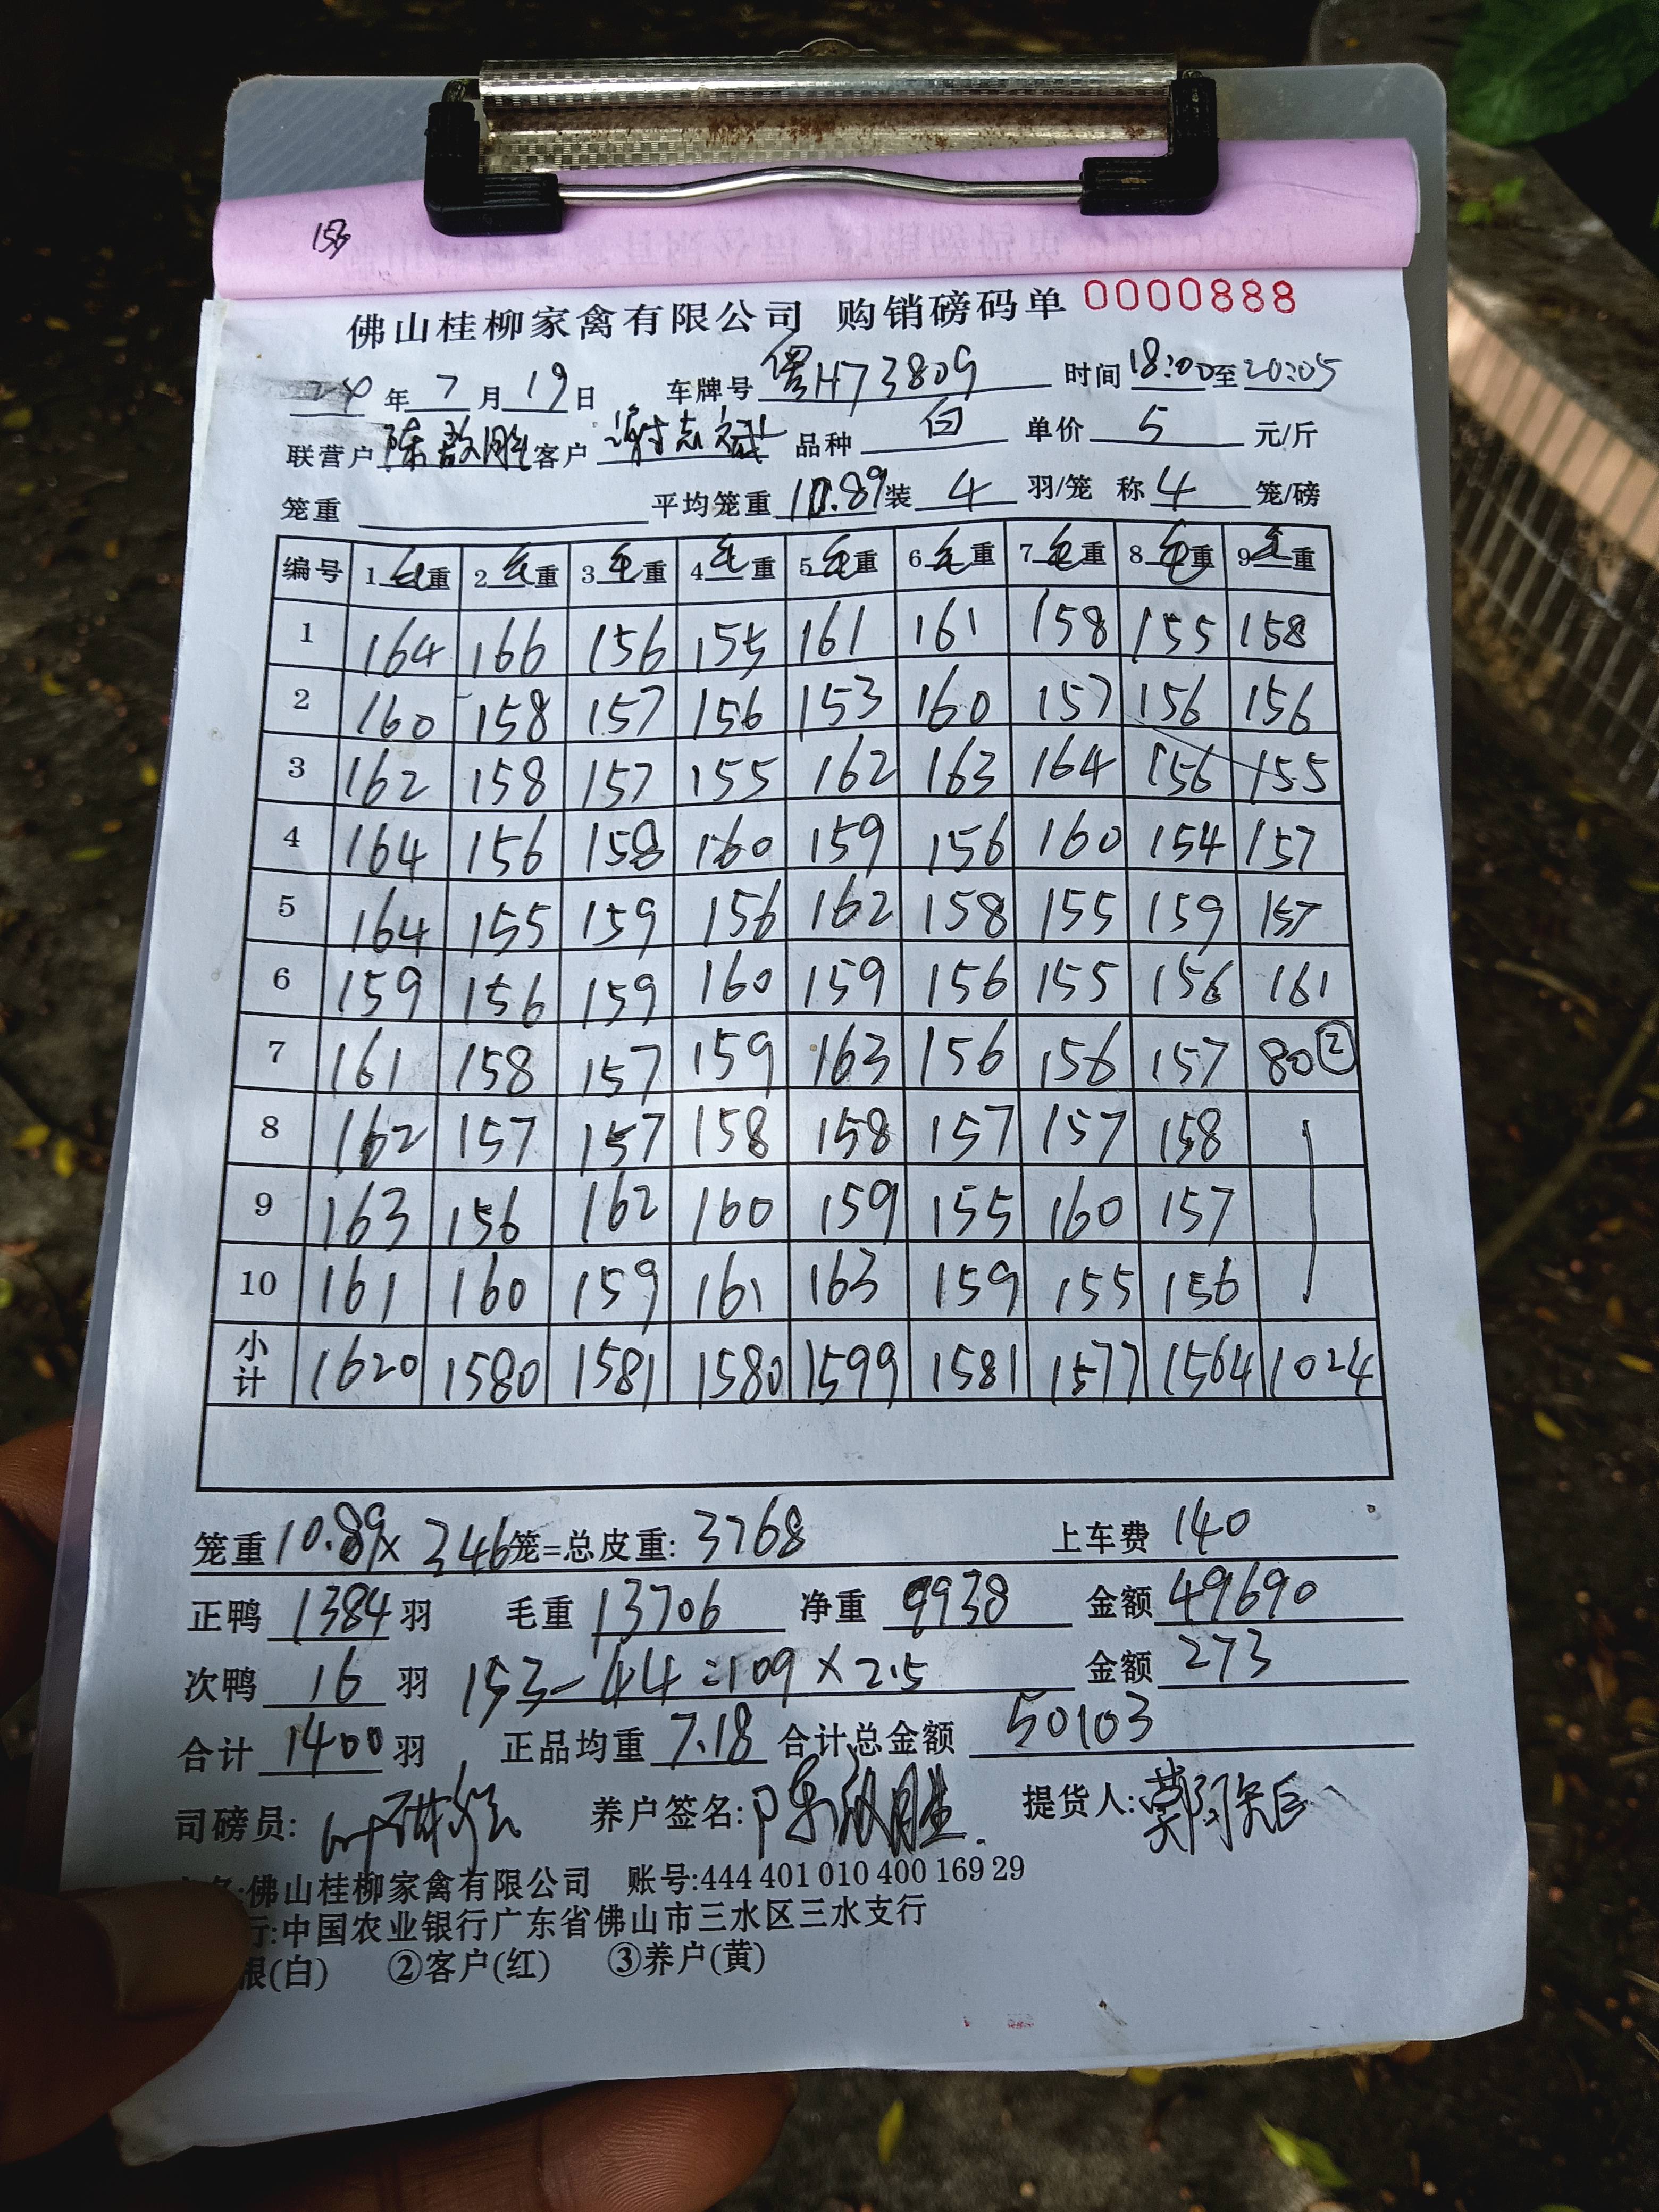 佛山桂柳家禽有限公司 购销磅码单 0000888
24 年 7 月 19 日 车牌号 粤H73809 时间 18:00 至 20:05
联营户 陈啟胜 客户 谢志斌 品种 白 单价 5 元/斤
笼重 平均笼重 10.89 装 4 羽/笼 称 4 笼/磅
编号 1毛重 2毛重 3毛重 4毛重 5毛重 6毛重 7毛重 8毛重 9毛重
1 164 166 156 155 161 161 158 155 158
2 160 158 157 156 153 160 157 156 156
3 162 158 157 155 162 163 164 156 155
4 164 156 158 160 159 156 160 154 157
5 164 155 159 156 162 158 155 159 157
6 159 156 159 160 159 156 155 156 161
7 161 158 157 159 163 156 156 157 80②
8 162 157 157 158 158 157 157 158
9 163 156 162 160 159 155 160 157
10 161 160 159 161 163 159 155 156
小计 1620 1580 1581 1580 1599 1581 1577 1564 1024
笼重 10.89 × 346 笼=总皮重: 3768 上车费 140
正鸭 1384 羽 毛重 13706 净重 9938 金额 49690
次鸭 16 羽 153-44=109×2.5 金额 273
合计 1400 羽 正品均重 7.18 合计总金额 50103
司磅员: 养户签名: 陈啟胜 提货人:
:佛山桂柳家禽有限公司 账号:444 401 010 400 169 29
行:中国农业银行广东省佛山市三水区三水支行
根(白) ②客户(红) ③养户(黄)